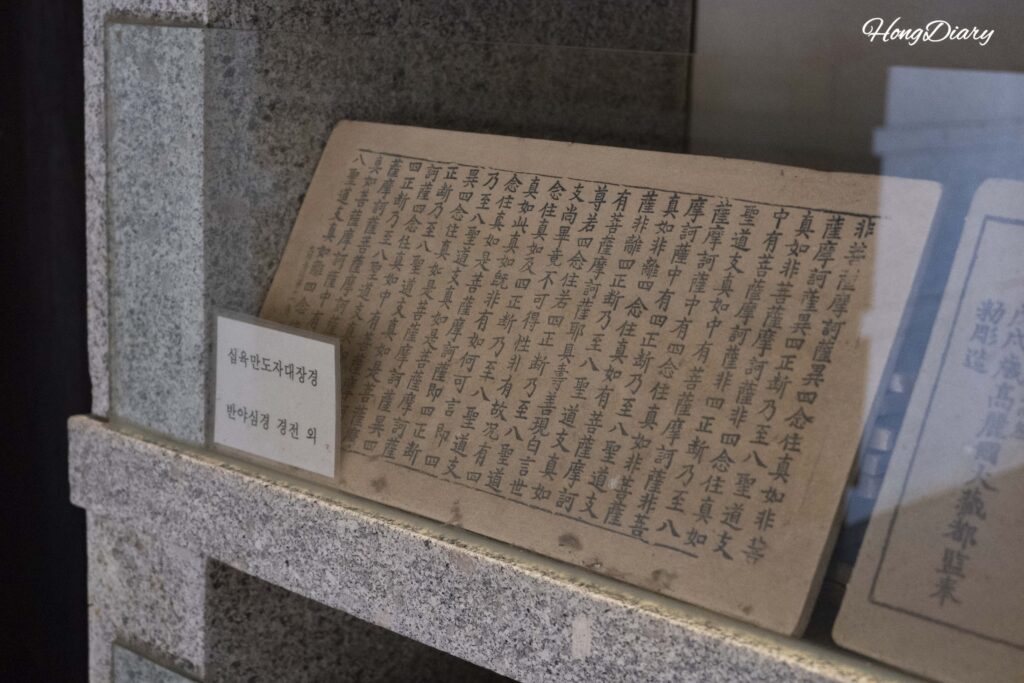 HongDiary
非菩薩摩訶薩異四念住真如非菩
薩摩訶薩異四正斷乃至八聖道支
真如非菩薩摩訶薩非四念住真如
中有菩薩摩訶薩非四正斷乃至八
聖道支真如中有菩薩摩訶薩非菩
薩摩訶薩中有四念住真如非菩薩
摩訶薩中有四正斷乃至八聖道支
真如非離四念住真如有菩薩摩訶
薩非離四正斷乃至八聖道支真如
有菩薩摩訶薩耶具壽善現白言世
尊若四念住若四正斷乃至八聖道
支尚畢竟不可得性非有故況有四
念住真如及四正斷乃至八聖道支
真如此真如既非有如何可言即四
念住真如是菩薩摩訶薩即四正斷
乃至八聖道支真如是菩薩摩訶薩
異四念住真如是菩薩摩訶薩異四
正斷乃至八聖道支真如是菩薩摩
訶薩四念住真如中有菩薩摩訶薩
四正斷乃至八聖道支真如中有菩
심육만도자대장경
반야심경 경전 외
戊戌歲高麗國大藏都監奉
勅彫造